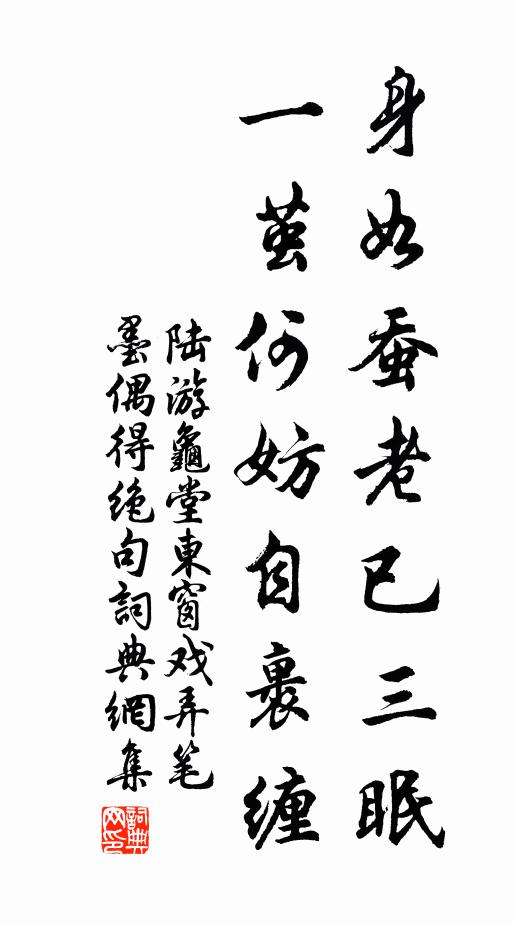 身如蚕老已三眠
一茧何妨自裹缠
陆游龜堂東窗戏弄笔
墨偶得绝句詞典網集
詞典
网印